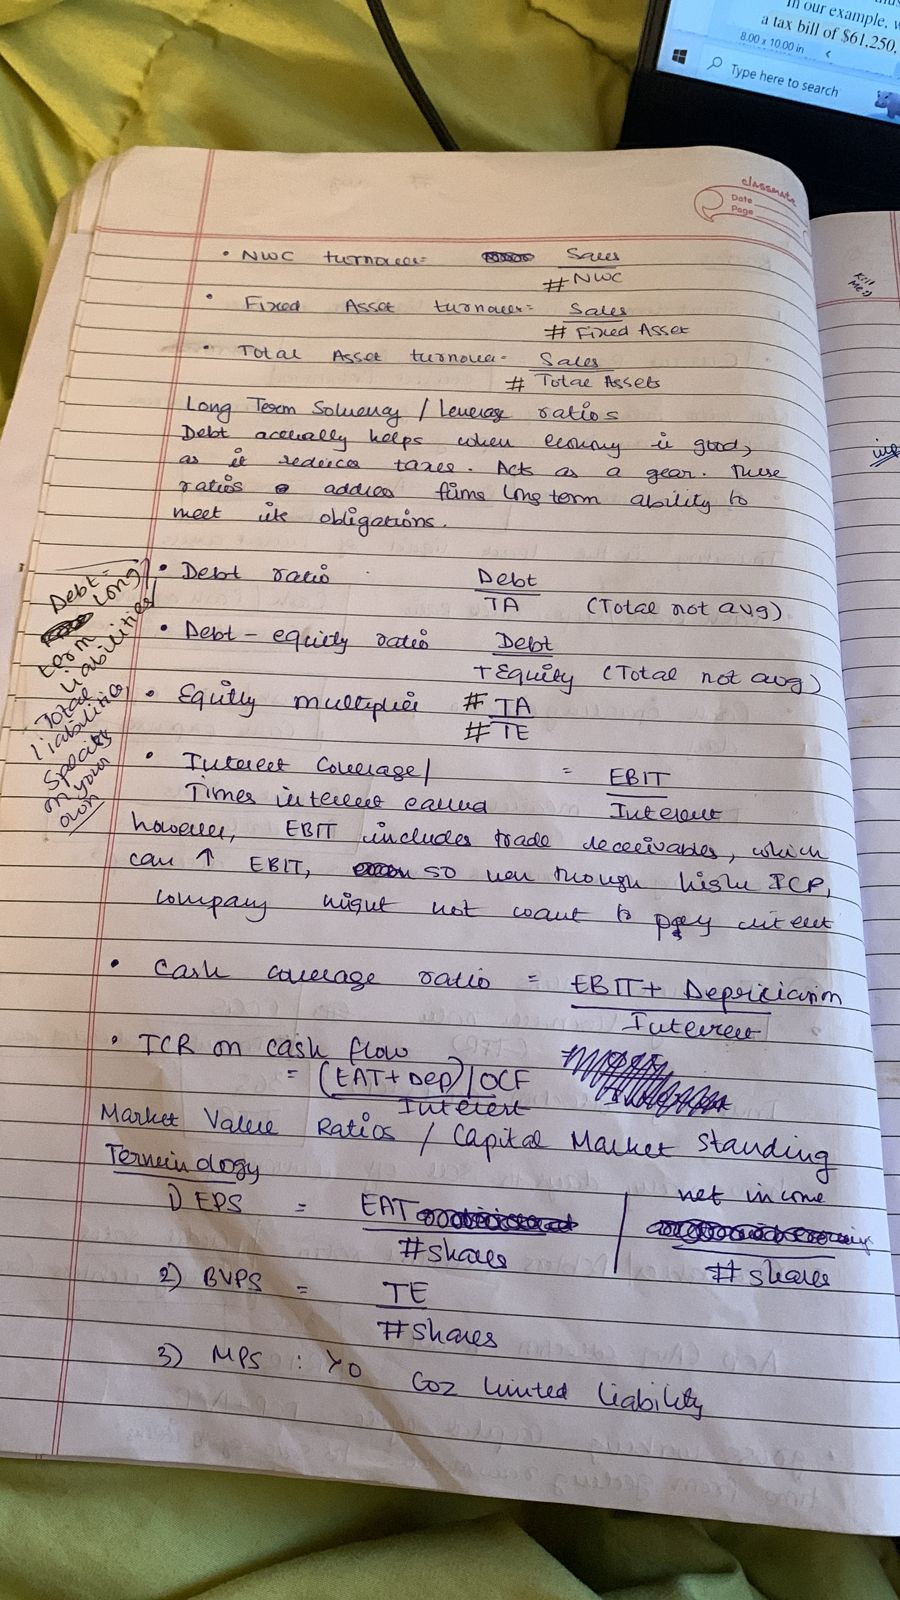 in our example, w
a tax bill of $61,250,
8.00 x 10.00 in
Type here to search
classmate
Date
Page
• NWC turnover= Sales
# NWC
• Fixed Asset turnover= Sales
# Fixed Asset
• Total Asset turnover= Sales
# Total Assets
Long Term Solvency / Leverage ratios
Debt actually helps when economy is good,
as it reduces taxes. Acts as a gear. These
ratios address firms long term ability to
meet its obligations.
• Debt ratio Debt
TA (Total not avg)
• Debt-equity ratio Debt
TEquity (Total not avg)
• Equity multiplier # TA
# TE
Debt =
Long
term
liabilities/
Total
liabilities
Specify
on your
own
• Interest Coverage/ = EBIT
Times interest earned Interest
however, EBIT includes trade receivables, which
can ↑ EBIT, so even though high ICR,
company might not want to pay interest
• Cash coverage ratio = EBIT+ Depriciation
Interest
• ICR on cash flow
= (EAT+Dep)/OCF
Interest
Market Value Ratios / Capital Market Standing
Terminology
1) EPS = EAT | net income
#shares #shares
2) BVPS = TE
#shares
3) MPS : Coz limited liability
Kill
Me